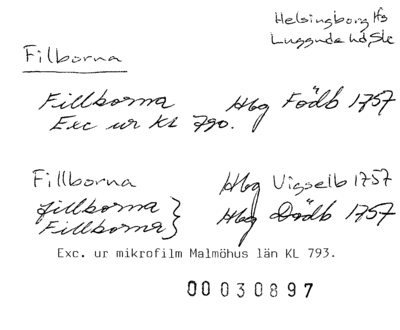 Helsingborg lfs
Luggude hd, Sk
Filborna
Fillborna Hbg Födb 1757
Exc ur KL 790.
Fillborna Hbg Vigselb 1757
fillborna } Hbg Dödb 1757
Fillborna }
Exc. ur mikrofilm Malmöhus län KL 793.
00030897